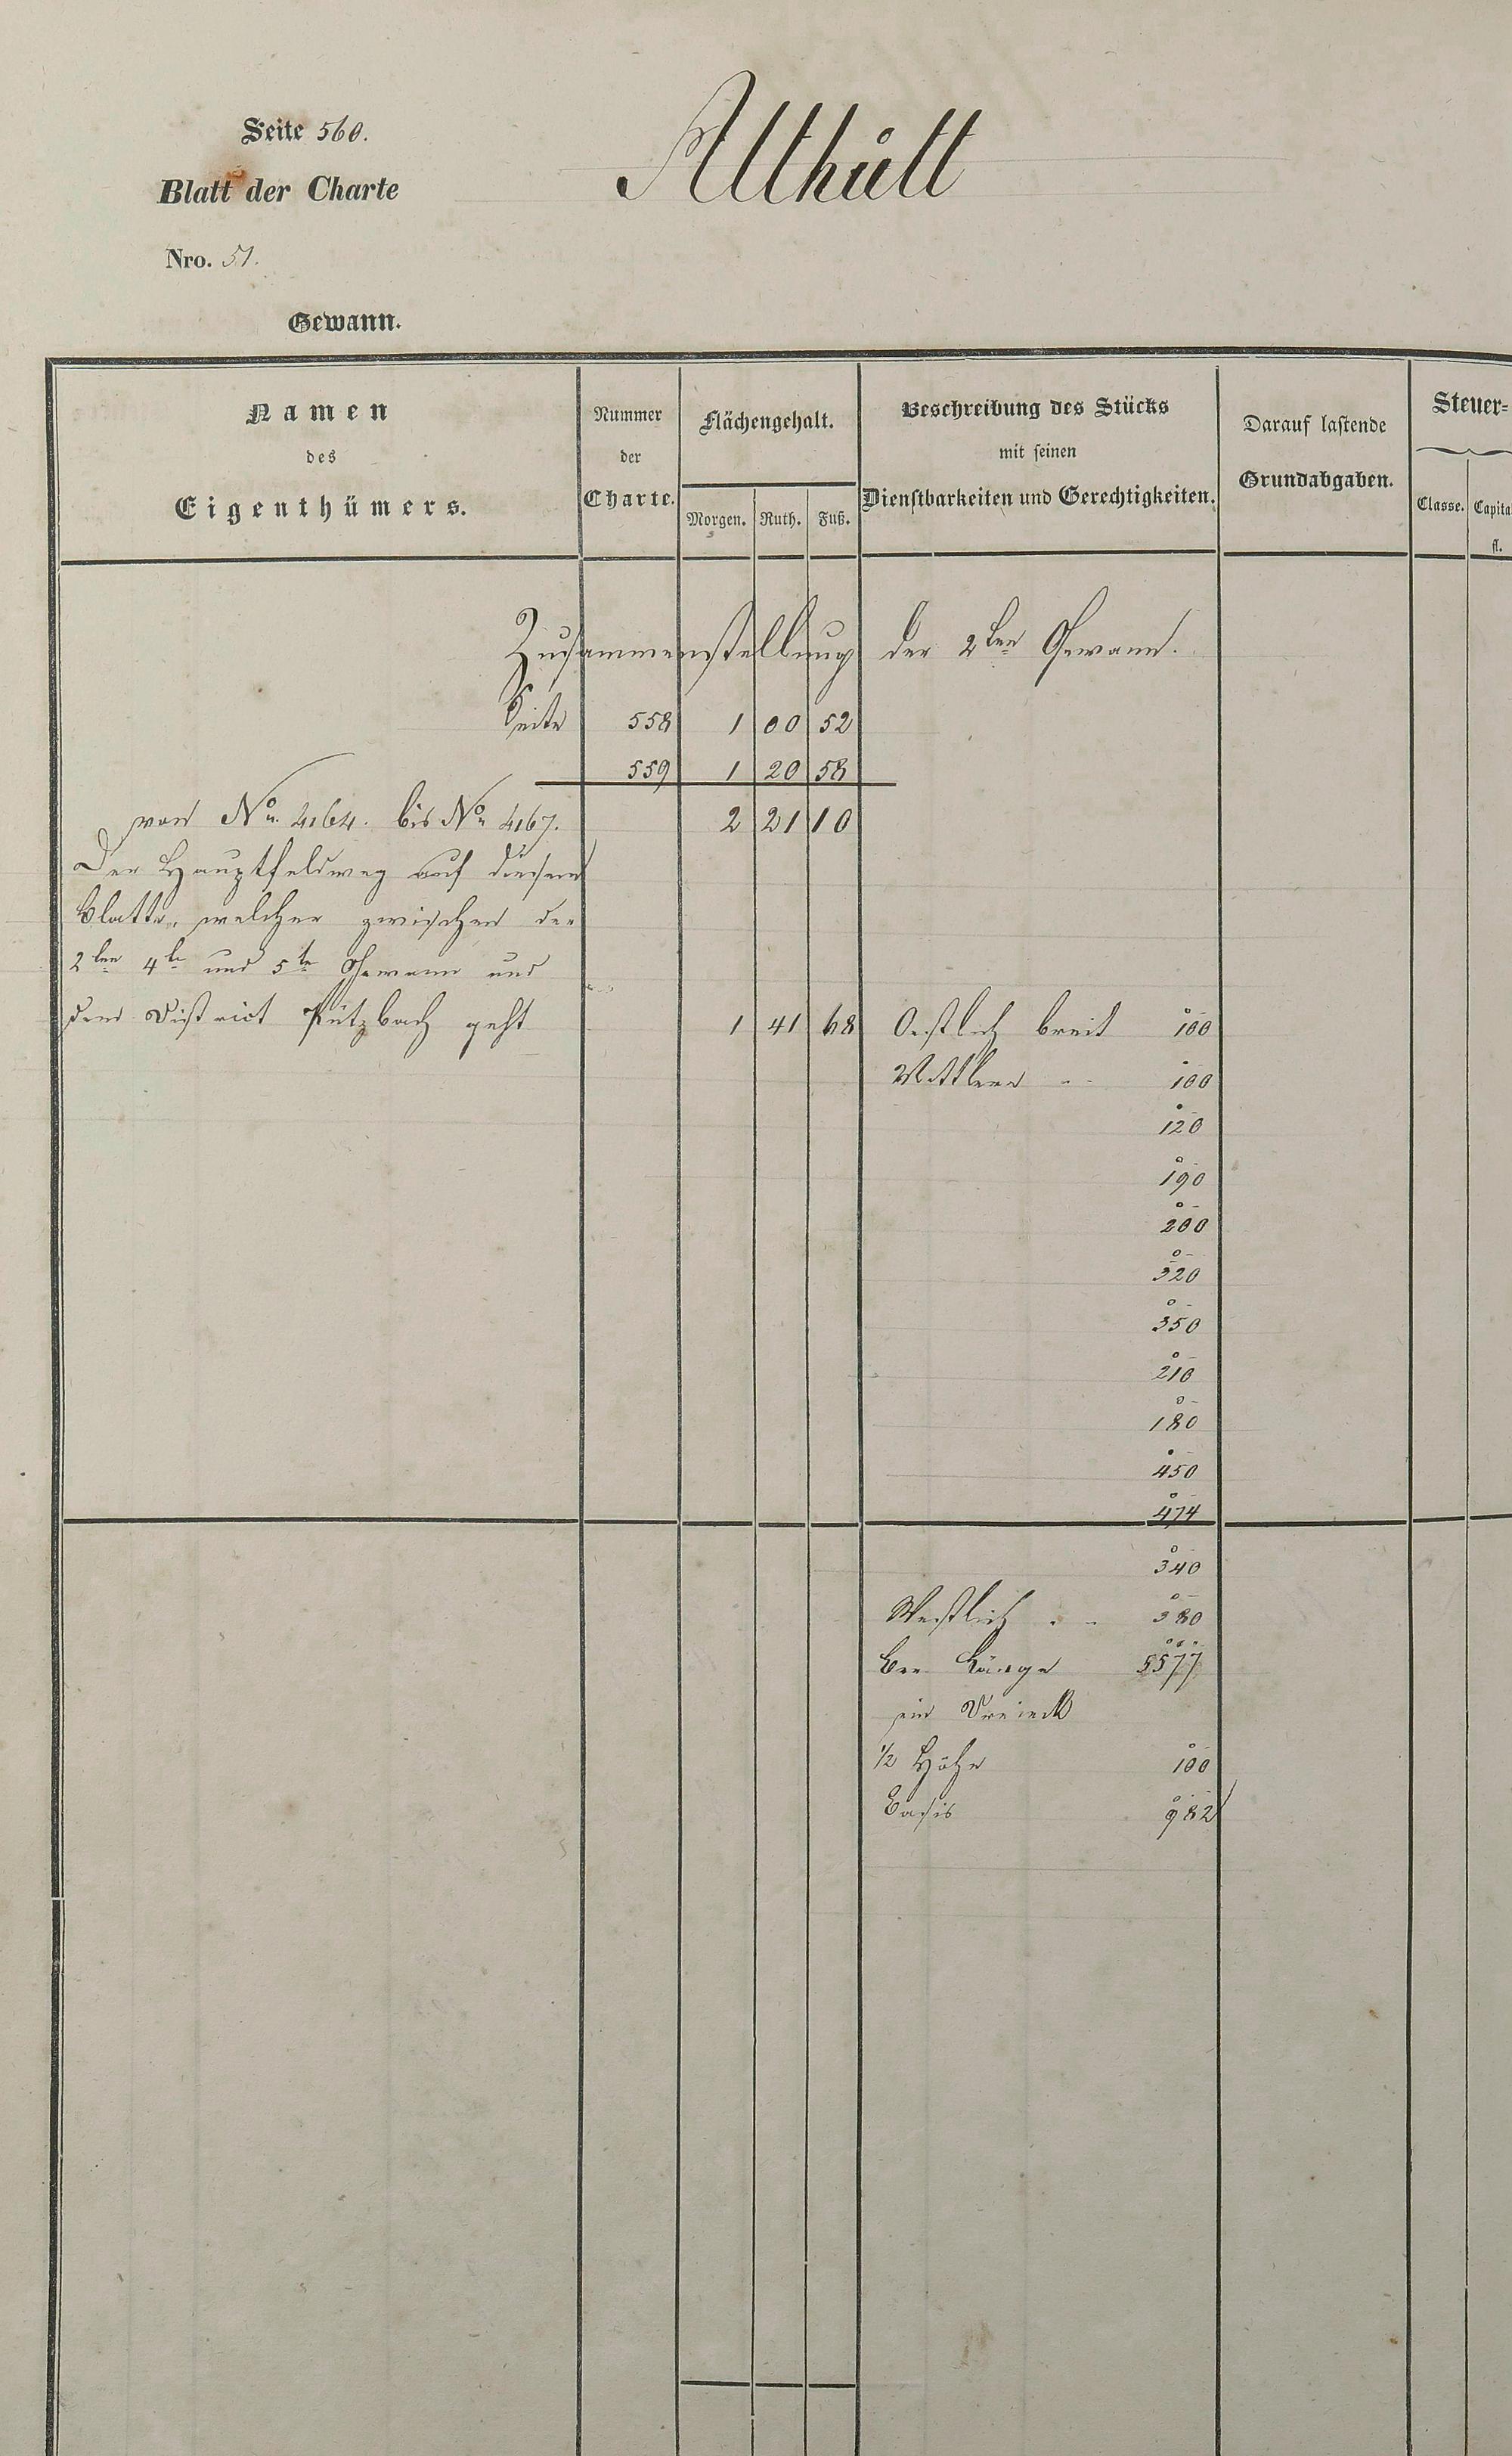 Seite 560.
Althütt
Blatt der Charte
Nro. 51.
Gewann.
Namen
des
Eigenthümers.
Nummer
der
Charte.
Flächengehalt.
Morgen. Ruth. Fuß.
Beschreibung des Stücks
mit seinen
Dienstbarkeiten und Gerechtigkeiten.
Darauf lastende
Grundabgaben.
Steuer=
Classe. Capita
fl.
Zusammenstellung der 2ten Gewann.
Seite 558 1 00 52
559 1 20 58
von No. 4164. bis No. 4167. 2 21 10
Der Hauptfeldweg auf diesem
Blatte, welcher zwischen der
2ten 4te und 5te Gewann und
dem District Pützbach geht 1 41 68 Oestlich breit 100
Mittlere " " 100
120
190
200
320
350
210
180
450
474
340
Westlich " " 380
Ber Länge 5577
ein Dreieck
1/2 Höhe 100
Basis 982